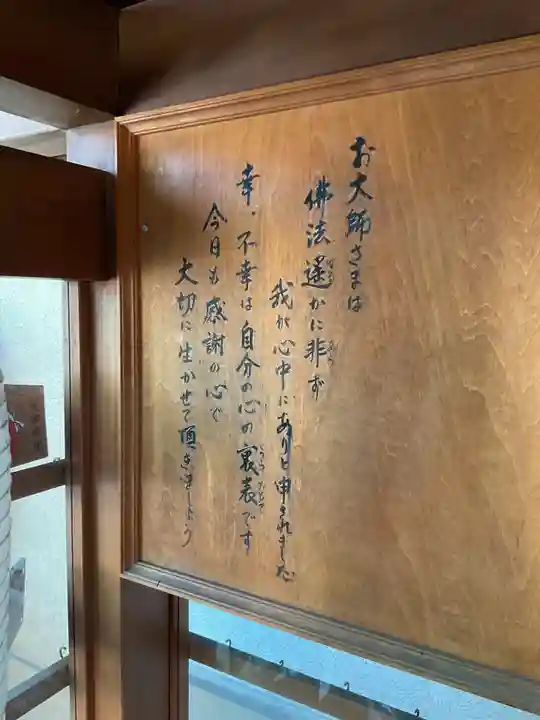 お大師さまは
佛法遙かに非ず
我が心中にありと申されました
幸、不幸は自分の心の裏表です
今日も感謝の心で
大切に生かせて頂きましょう